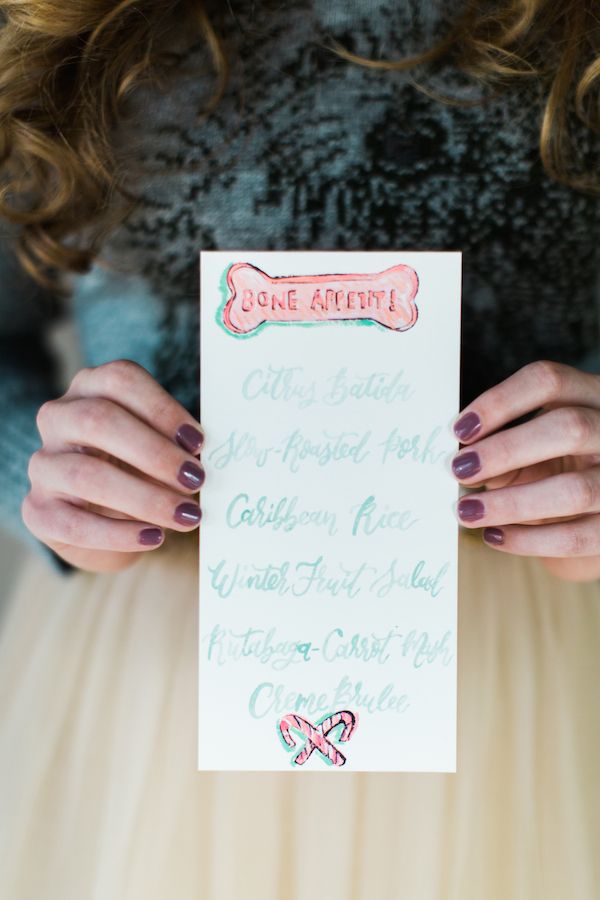 BONE APPETIT!
Citrus Batida
Slow-Roasted Pork
Caribbean Rice
Winter Fruit Salad
Rutabaga-Carrot Mash
Creme Brulee